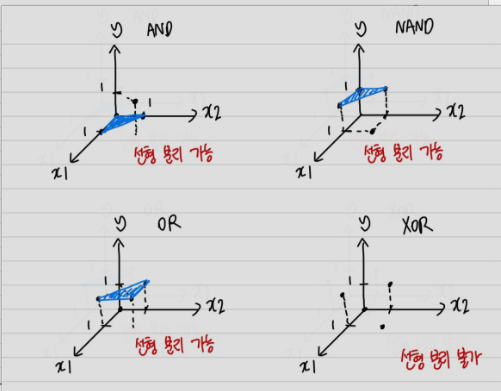 y AND
1
1
x2
1
x1
선형 분리 가능
y NAND
1
x2
1
x1
선형 분리 가능
y OR
1
x2
1
x1
선형 분리 가능
y XOR
1
x2
1
x1
선형 분리 불가